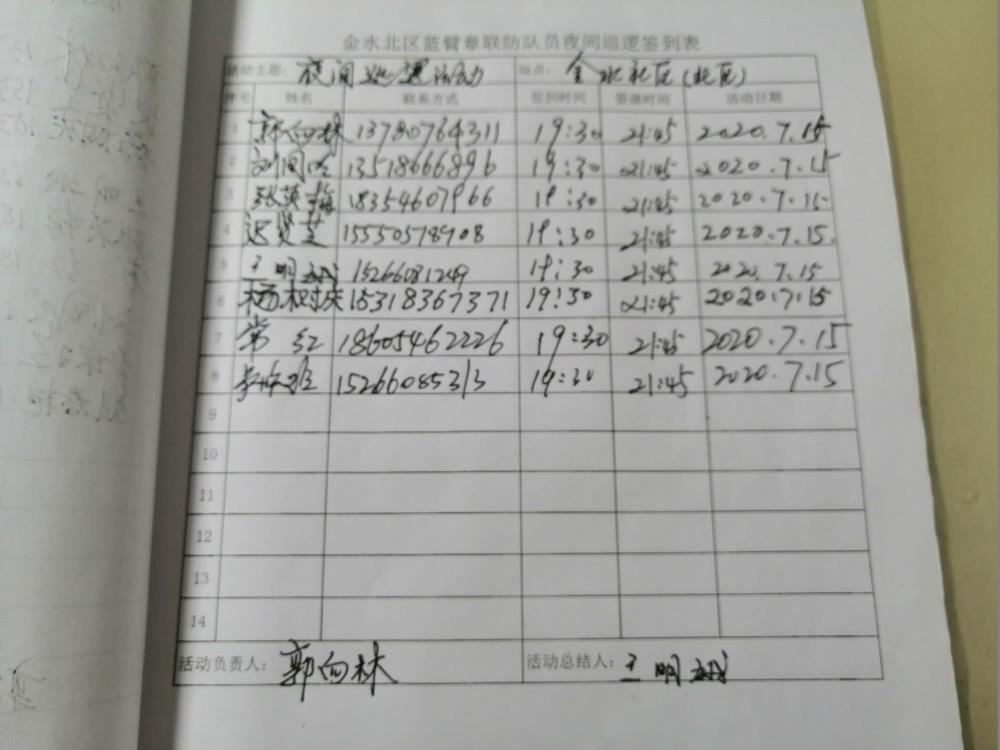 金水北区蓝臂章联防队员夜间巡逻签到表
活动主题: 夜间巡逻活动 地点: 金水社区(北区)
序号 姓名 联系方式 签到时间 签退时间 活动日期
1 郭向林 13780764311 19:30 21:45 2020.7.15
2 13518666896 19:30 21:45 2020.7.15
3 张英梅 18354607966 19:30 21:45 2020.7.15
4 迟贤芝 15550578908 19:30 21:45 2020.7.15
5 王明娥 15266081249 19:30 21:45 2020.7.15
6 杨树庆 15318367371 19:30 21:45 2020.7.15
7 常红 18605462226 19:30 21:45 2020.7.15
8 15266085313 19:30 21:45 2020.7.15
9
10
11
12
13
14
活动负责人: 郭向林 活动总结人: 王明娥